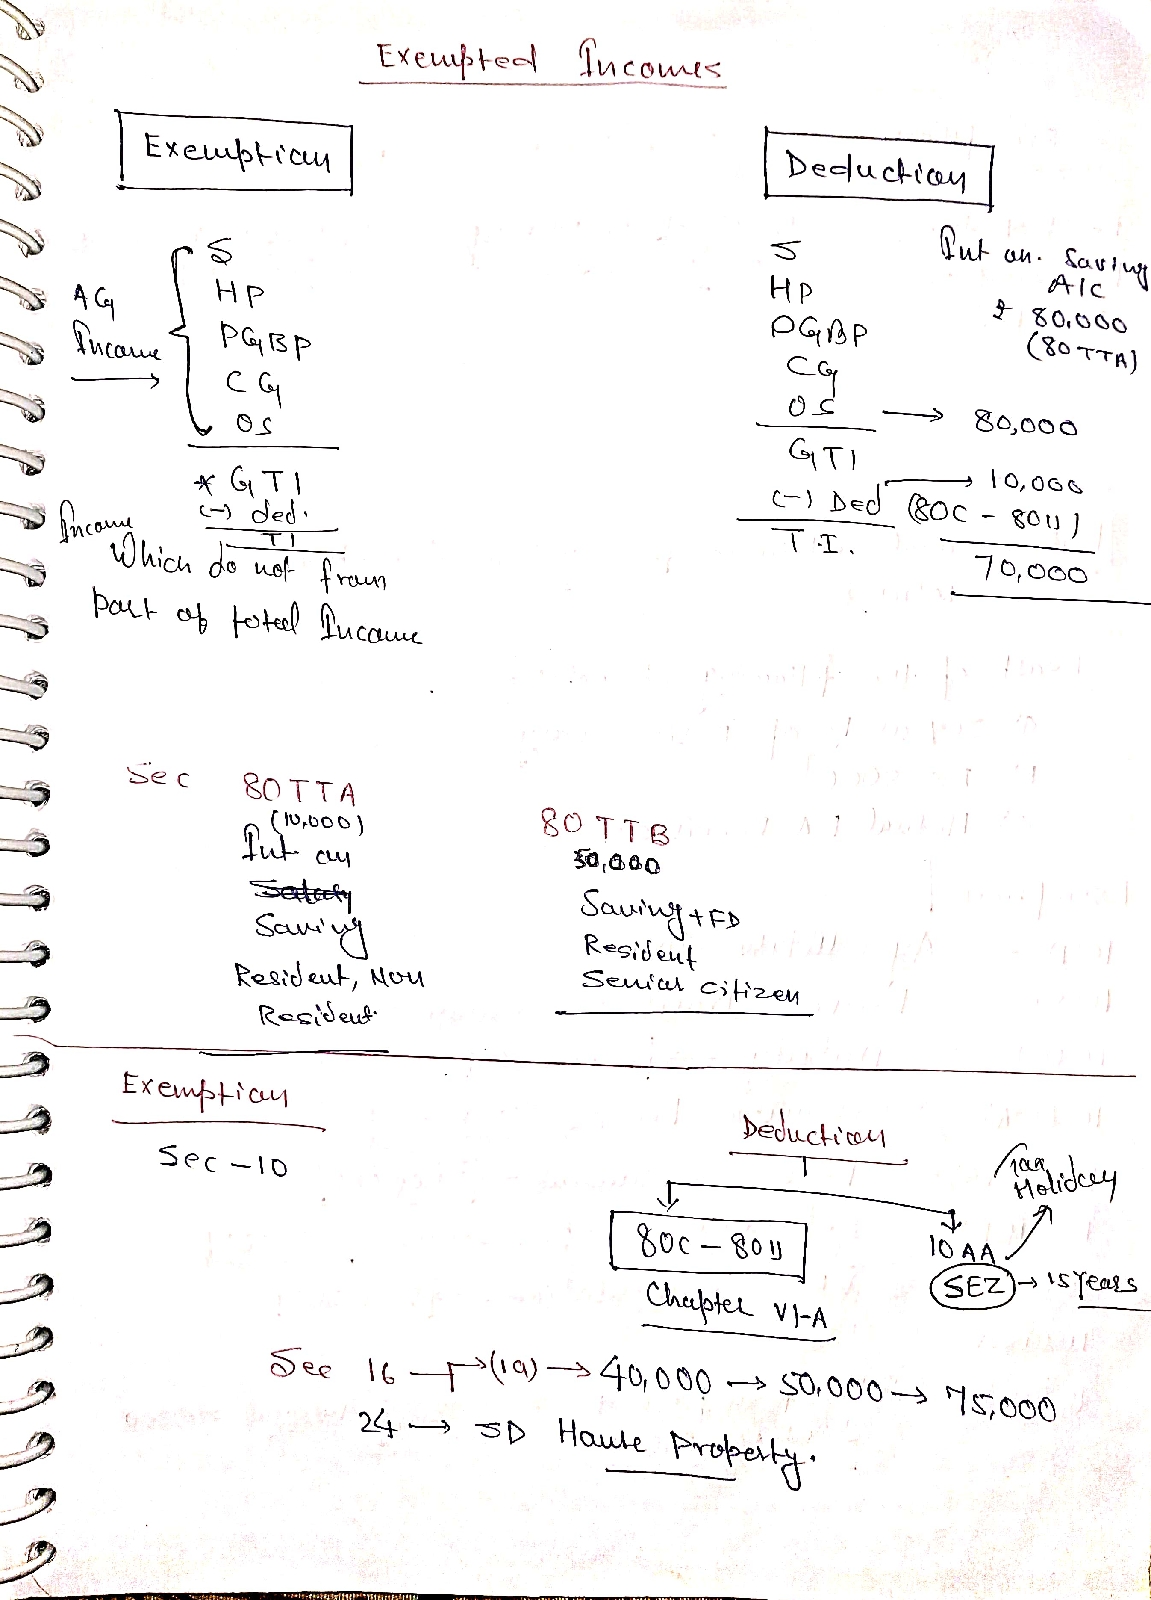 Exempted Incomes
Exemption
S
HP
PGBP
CG
OS
AG
Income
* GTI
(-) ded.
TI
Income
which do not from
part of total Income
Deduction
S
HP
PGBP
CG
OS → 80,000
GTI
→ 10,000
(-) Ded (80C - 80U)
T.I.
70,000
Int on. Saving
A/C
₹ 80,000
(80TTA)
Sec 80TTA
(10,000)
Int on
Saving
Resident, Non
Resident.
80 TTB
50,000
Saving + FD
Resident
Senior citizen
Exemption
Sec - 10
Deduction
80C - 80U
Chapter VI-A
Tax
Holiday
10 AA
SEZ → 15 Years
Sec 16 → (ia) → 40,000 → 50,000 → 75,000
24 → SD House Property.